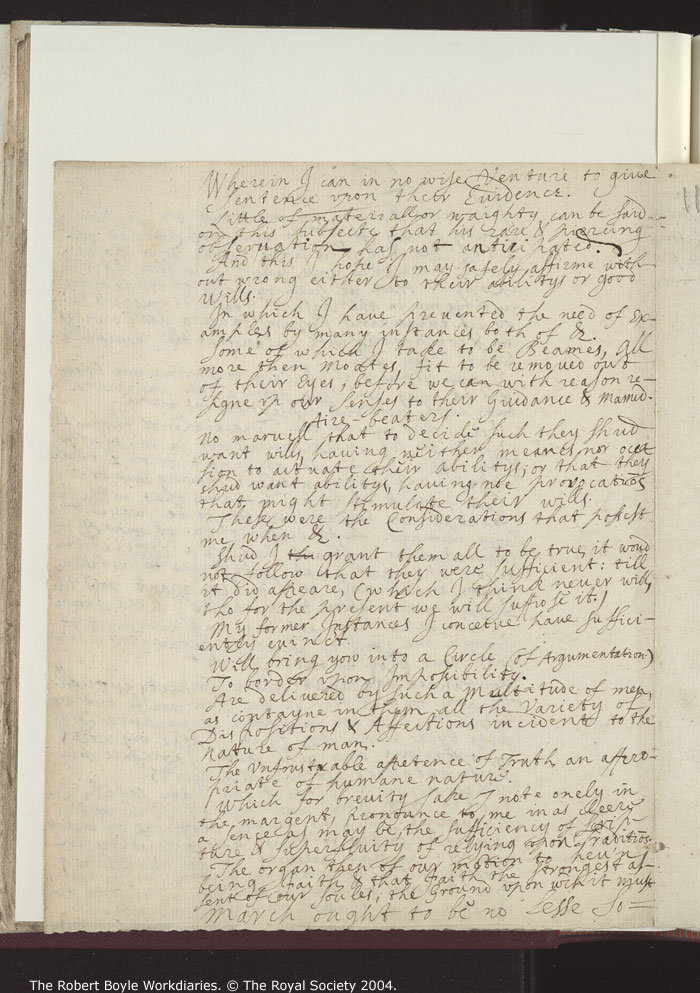 Wherein I can in no wise Venture to give
sentence upon their Evidence.
Little of materiall or waighty can be said
on this subjecte that his rare & piercing
observation has not anticipated.
And this I hope I may safely affirme with
out wrong either to their abilitys or good
Wills.
In which I have prevented the need of Ex-
amples by many instances both of &c.
Some of which I take to be Beames, all
more then Moates, fit to be removed out
of their Eyes, before we can with reason re-
signe up our senses to their Guidance &
Aire-beaters.
No marvell that to decide such they shud
want wills, having neither meanes nor occa
sion to actuate their abilitys; or that they
shud want abilitys, having noe provocations
that might stimulate their wills.
These were the Considerations that possest
me when &c.
Shud I the grant them all to be true, it woud
not follow that they were sufficient: till
it did appeare, (which I think never will,
tho for the present we will suppose it.)
My former Instances I conceive have suffici-
ently evinct.
Will bring you into a Circle (of Argumentation)
To border upon Impossibility.
Are delivered by such a Multitude of men,
as contayne in them all the Variety of
Dispositions & Affections incident to the
nature of man.
The Unfrustrable appetence of Truth an appro-
priate of humane nature.
Which for brevity sake I note onely in
the margent, pronounce to me in as cleere
a sence as may be, the sufficiency of Scrip-
ture & superfluity of relying upon Tradition.
The organ then of our motion to heu'n
being faith & that faith the strongest as-
sent of our soules; the Ground upon wch it must
March ought to be no lesse so=
11
The Robert Boyle Workdiaries. © The Royal Society 2004.